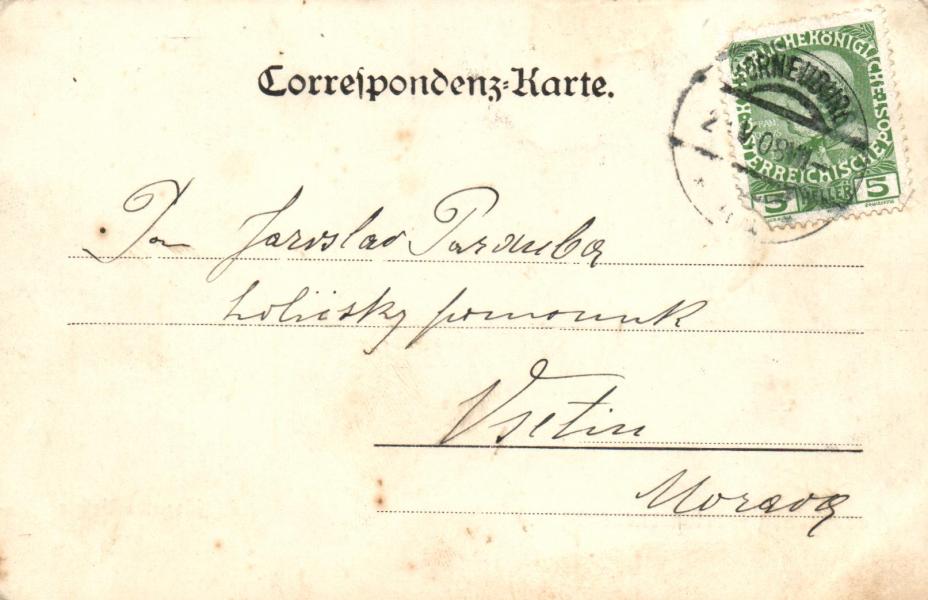 Correspondenz-Karte.
KAISERLICHEKÖNIGLICHE
ÖSTERREICHISCHE POST
5 HELLER 5
KORNEUBURG
08
Pan Jaroslav Parduba
holičský pomocník
Vsetin
Morava